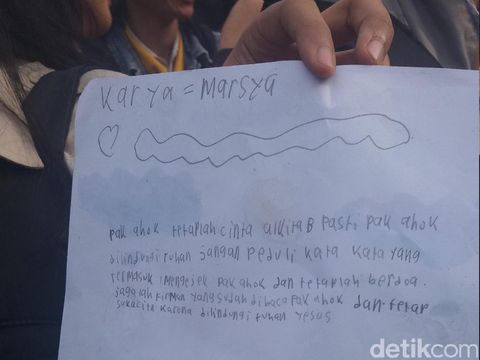 Karya = Marsya
pak ahok tetaplah cinta alkitab pasti pak ahok
dilindungi tuhan jangan peduli kata kata yang
termasuk mengejek pak ahok dan tetaplah berdoa.
jagalah firman yang sudah dibaca pak ahok dan tetap
sukacita karona dilindungi tuhan yesus
detikcom